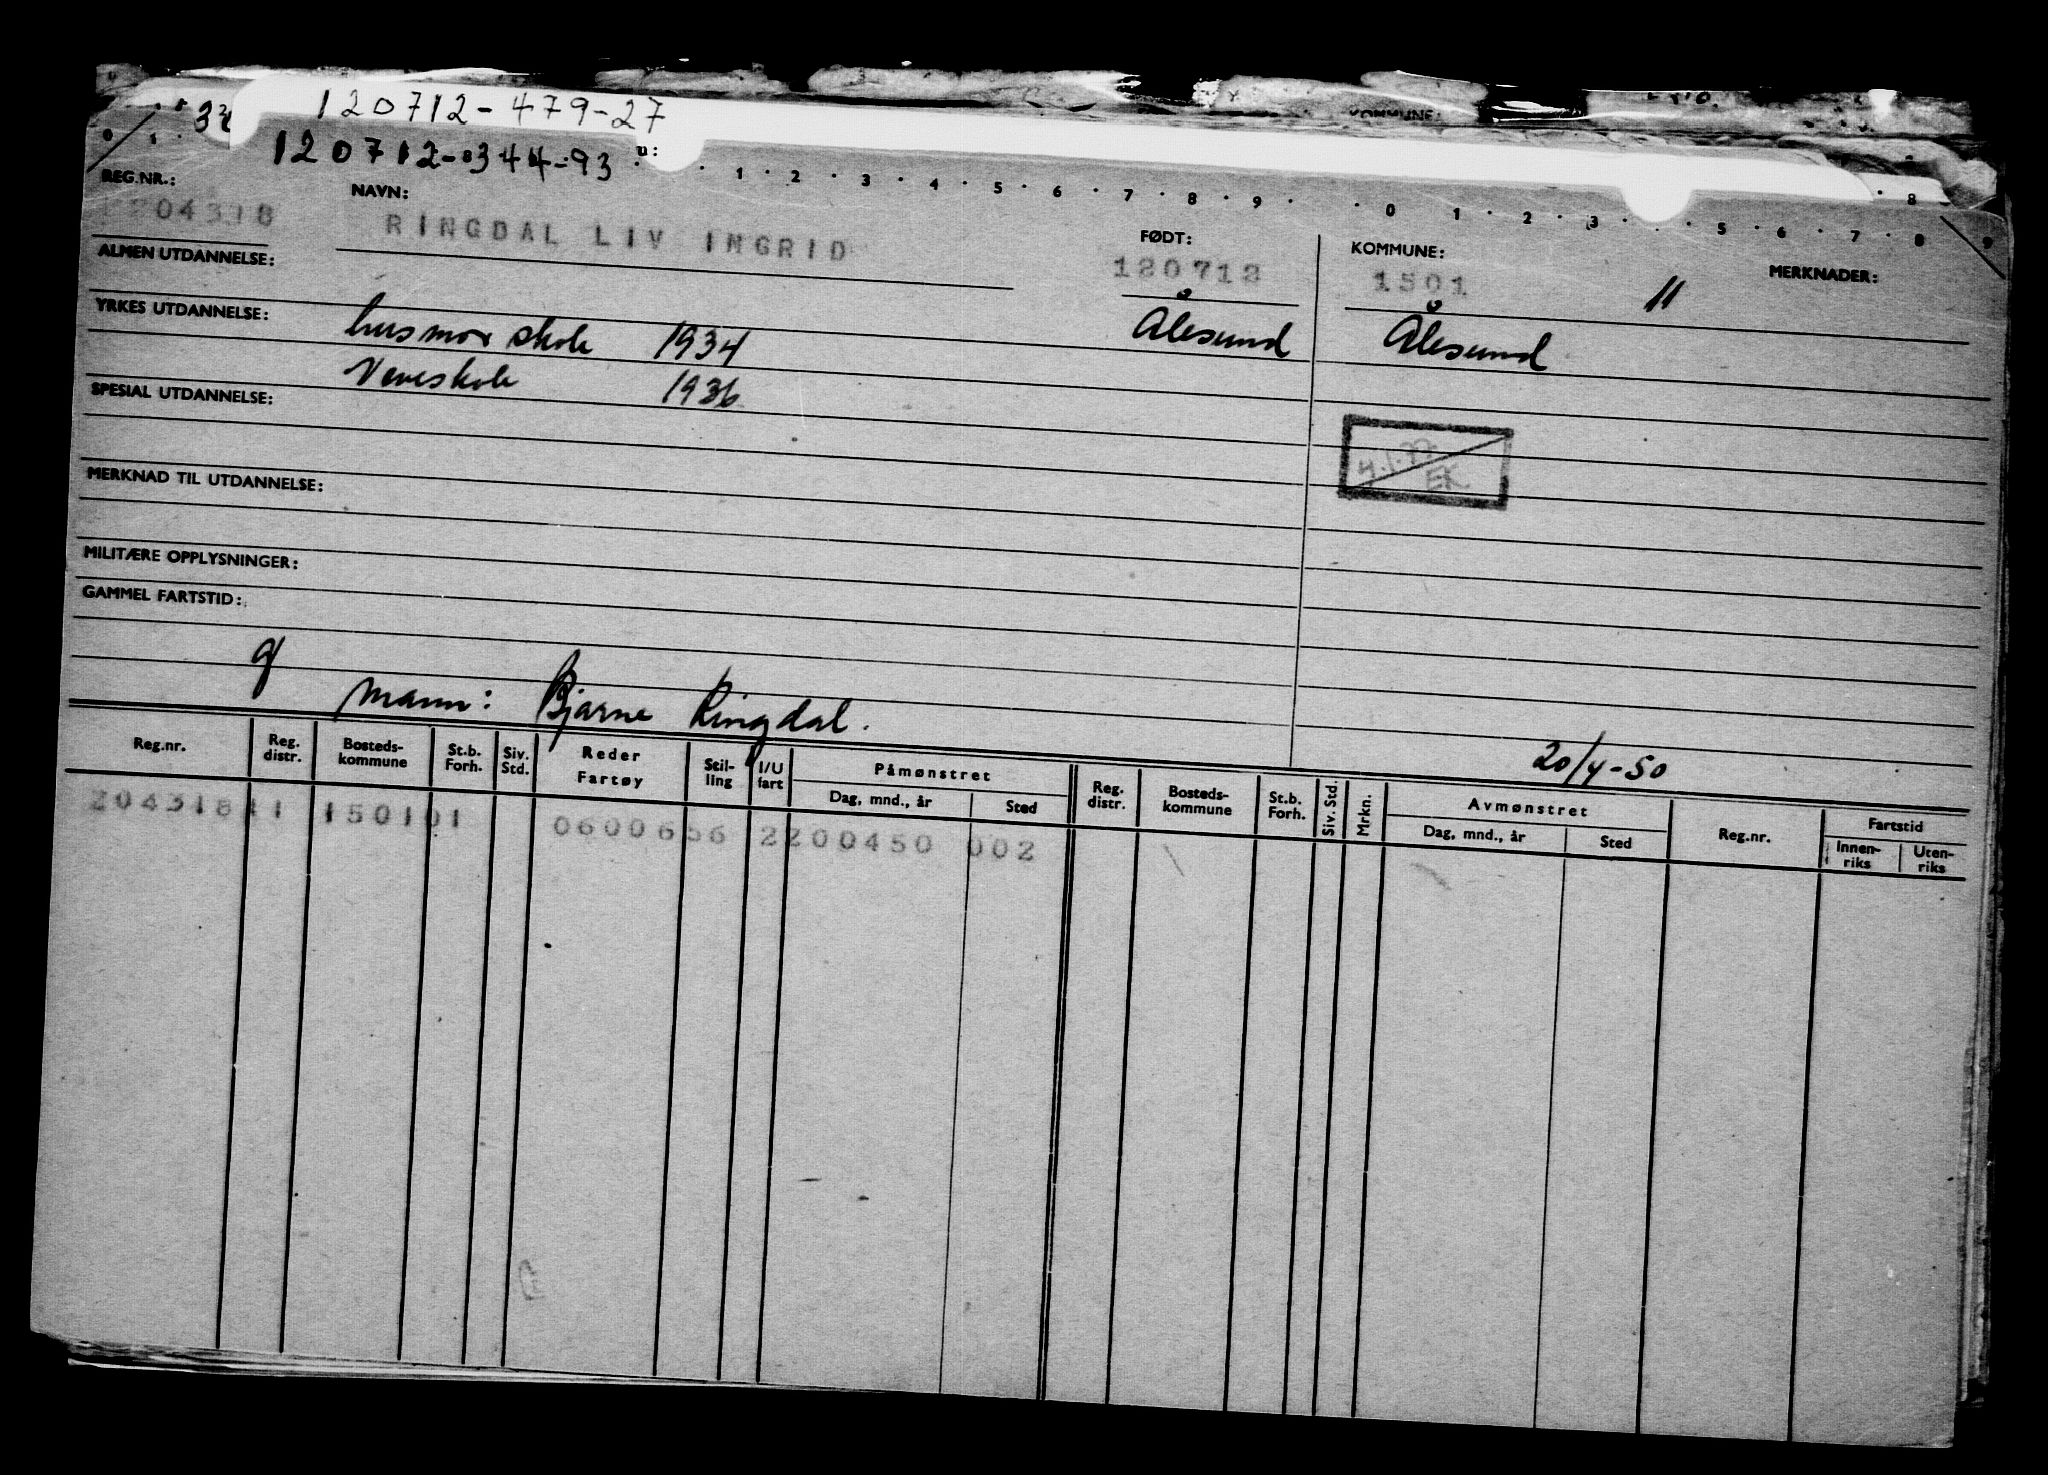 120712-479-27
120712-344-93
REG.NR.:
204318
NAVN:
RINGDAL LIV INGRID
FØDT:
120712
KOMMUNE:
1501
11
MERKNADER:
ALMEN UTDANNELSE:
YRKES UTDANNELSE:
husmorskole 1934
Ålesund
Ålesund
Veveskole 1936
SPESIAL UTDANNELSE:
4.1.77
EK
MERKNAD TIL UTDANNELSE:
MILITÆRE OPPLYSNINGER:
GAMMEL FARTSTID:
g
Mann: Bjarne Ringdal.
20/4-50
Reg.nr. Reg. distr. Bosteds-kommune St.b. Forh. Siv. Std. Reder Fartøy Stil-ling I/U fart Påmønstret Dag, mnd., år Sted Reg. distr. Bosteds-kommune St.b. Forh. Siv. Std. Mrkn. Avmønstret Dag, mnd., år Sted Reg.nr. Fartstid Innen-riks Uten-riks
20431811 150101 0600656 2200450 002